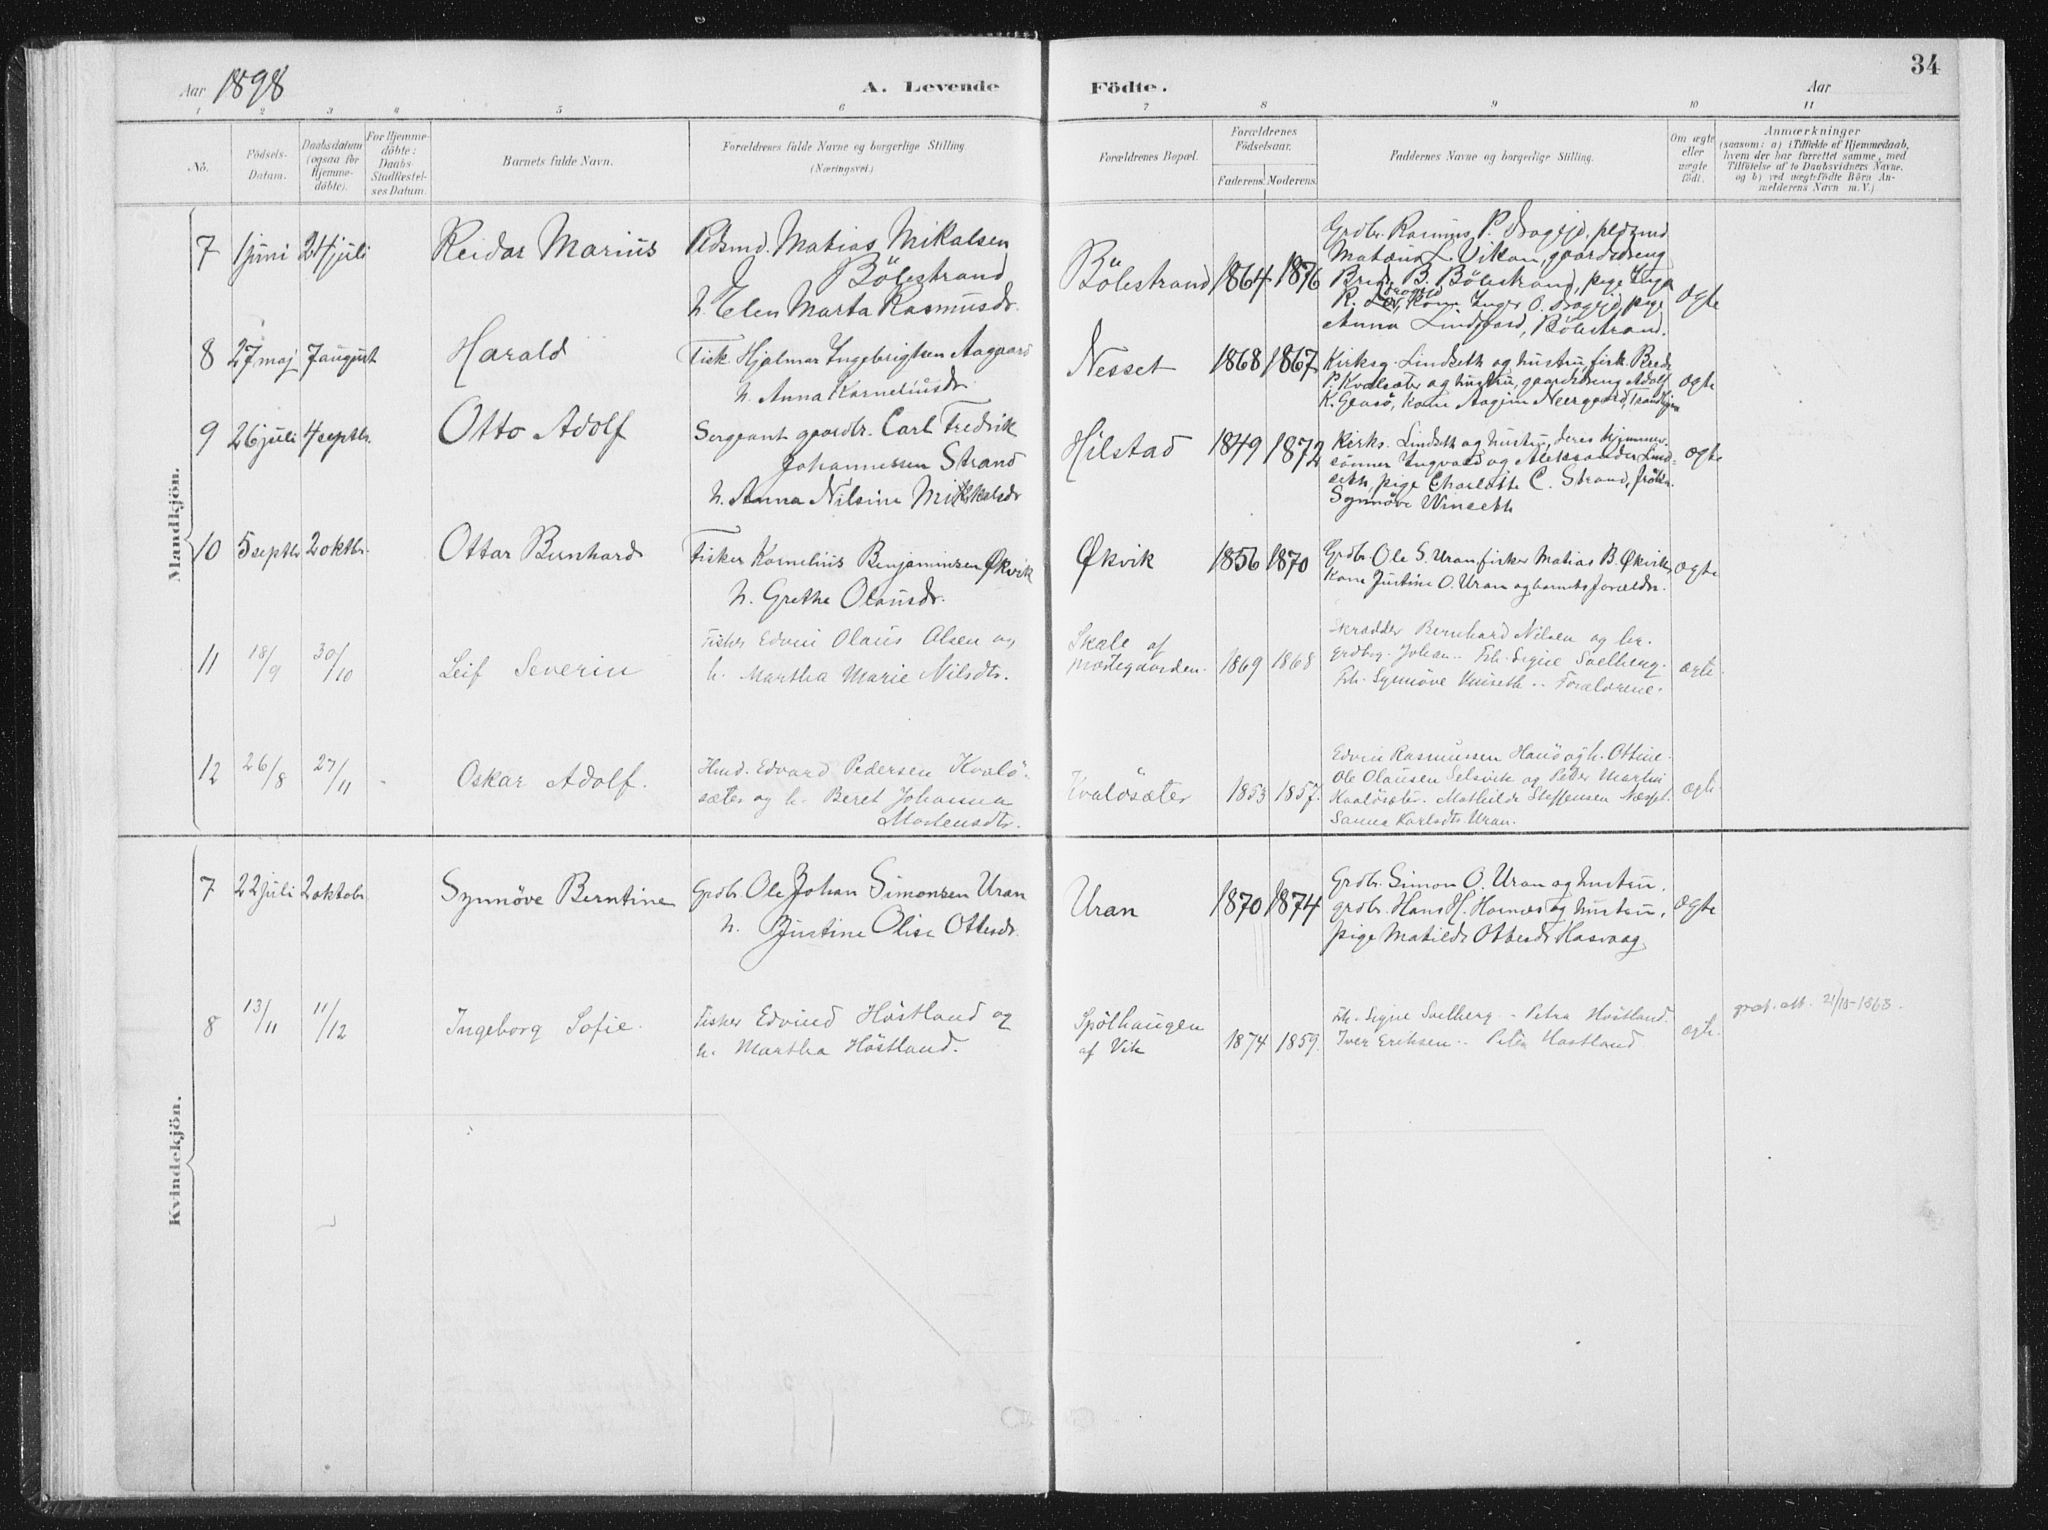 34
Aar 1898
A. Levende Födte.
Aar
1 2 3 4 5 6 7 8 9 10 11
No.
Födsels-Datum.
Daabsdatum (ogsaa for Hjemmedöbte).
For Hjemmedöbte: Daabs-Stadfestelses Datum.
Barnets fulde Navn.
Forældrenes fulde Navne og borgerlige Stilling (Næringsvei.)
Forældrenes Bopæl.
Forældrenes Födselsaar.
Faderens. Moderens.
Faddernes Navne og borgerlige Stilling.
Om ægte eller uægte födt.
Anmærkninger
(saasom: a) i Tilfælde af Hjemmedaab,
hvem der har forrettet samme, med
Tilföielse af to Daabsvidners Navne,
og b) ved uægtefödte Börn An-
melderens Navn m. V.)
Mandkjön.
7 1 juni 24 juli Reidar Marius
Pldsmd. Matias Mikalsen
Bölestrand
h. Elen Marta Rasmusdr.
Bölestrand 1864 1876
Grdbr. Rasmus P. Dragejd, pldsmd
Matæus L. Vikan, gaardsdreng
B. Bölestrand, pige
Kone Inger O. Dragejd, pige
Anna Lindgaard, Bölestrand.
ægte
8 27 maj 7 august Harald
Fisk. Hjalmar Ingebrigtsen Aagaard
h. Anna Korneliusdr.
Nesset 1868 1867
Kirksg. Lindseth og hustru, fisk.
P. Kvalöæter og hustru, gaardsdreng Adolf
K. Grasö, Kone Aagine Neergaard,
ægte
9 26 juli 4 septbr. Otto Adolf
Sergeant gaardbr. Carl Fredrik
Johannessen Strand
h. Anna Nilsine Mikkalsdr
Hilstad 1849 1872
Kirks. Lindseth og hustru, deres hjemmev.
sönner Ingvald og Aleksander Lind-
seth, pige Charlotte C. Strand, fröken
Synnöve Winseth
ægte
10 5 septbr 2 oktbr. Ottar Bernhard
Fisker Kornelius Benjaminsen Økvik
h. Grethe Olausdr.
Økvik 1856 1870
Grdbr. Ole S. Uran, fisker Matias B. Økvik,
Kone Justine O. Uran og barnets forældre.
ægte
11 18/9 30/10 Leif Severin
Fisker Edvin Olaus Olsen og
h. Martha Marie Nilsdtr.
Skale af
Prestegaarden. 1869 1868
Skrædder Bernhard Nilsen og hr.
Johan .. Frk. Signe Soelberg.
Frk. Synnöve Vinseth .. Forældrene.
ægte.
12 26/8 27/11 - Oskar Adolf.
Hmd. Edvard Pedersen Kvalö-
sæter og h. Beret Johanna
Mortensdtr.
Kvalösæter 1853 1857.
Edvin Rasmussen Hanö og h. Ottine.
Ole Olausen Selsvik og Peder Martin
Kvalösæter. Mathilde Steffensen Næsset.
Sanna Karlsdtr Uran.
ægte
Kvindekjön.
7 22 juli 2 oktobr. Synnöve Berntine
Grdbr. Ole Johan Simonsen Uran
h. Justine Olise Ottesdr.
Uran 1870 1874
Grdbr. Simon O. Uran og hustru,
grdbr. Hans H. Hornæs og hustru,
pige Matilde Ottesdr Hasvaag
ægte
8 13/11 11/12 Ingeborg Sofie.
Fisker Edvind Höstland og
h. Martha Höstland.
Spölhaugen
af Vik 1874 1859.
Frk. Signe Soelberg .. Petra Höstland.
Iver Eriksen .. Peter Höstland
ægte.